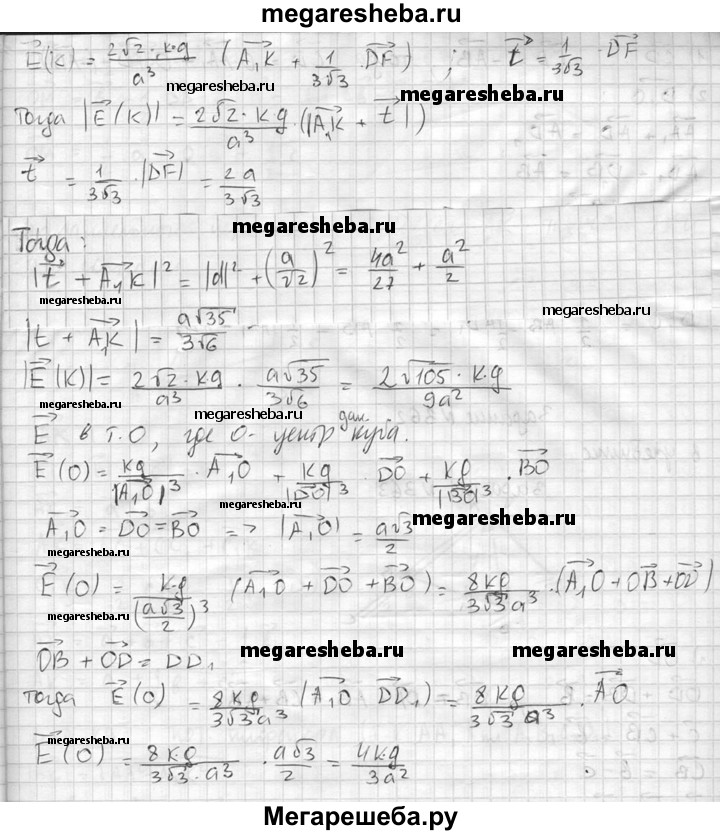 megaresheba.ru
E⃗(K) = 2√2·k·g/a³ · (A₁K⃗ + 1/3√3 · DF⃗) ; t⃗ = 1/3√3 · DF⃗
megaresheba.ru megaresheba.ru
Тогда |E⃗(K)| = 2√2·k·g/a³ · (|A₁K⃗ + t⃗|)
t⃗ = 1/3√3 · |DF⃗| = 2a/3√3
megaresheba.ru
Тогда:
|t⃗ + A₁K⃗|² = |d|² + (a/√2)² = 4a²/27 + a²/2
megaresheba.ru megaresheba.ru
|t + A₁K⃗| = a√35/3√6
|E⃗(K)| = 2√2·k·g/a³ · a√35/3√6 = 2√105·k·g/9a²
megaresheba.ru megaresheba.ru
E⃗ в т.O, где O- центр дан. куба.
E⃗(O) = kg/|A₁O⃗|³ · A₁O⃗ + kg/|DO⃗|³ · DO⃗ + kg/|BO⃗|³ · BO⃗
megaresheba.ru
A₁O⃗ = DO⃗ = BO⃗ => |A₁O⃗| = a√3/2 megaresheba.ru
megaresheba.ru
E⃗(O) = k·g/(a√3/2)³ (A₁O⃗ + DO⃗ + BO⃗) = 8kg/3√3a³ · (A₁O⃗ + OB⃗ + OD⃗)
OB⃗ + OD⃗ = DD₁ megaresheba.ru megaresheba.ru
тогда E⃗(O) = 8kg/3√3a³ (A₁O⃗ DD₁⃗) = 8kg/3√3a³ · AO⃗
megaresheba.ru
E⃗(O) = 8k·g/3√3·a³ · a√3/2 = 4k·g/3a²
megaresheba.ru
Мегарешеба.ру